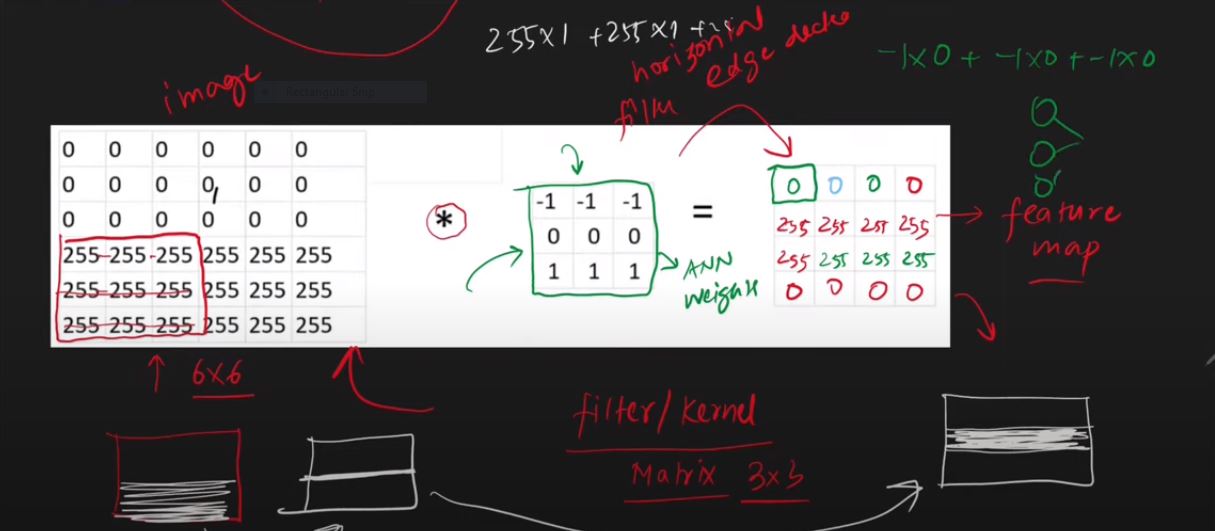 255x1 +255x1 +25
horizontal
edge detco
filter
-1x0 + -1x0 + -1x0
image
Rectangular Snip
0 0 0 0 0 0
0 0 0 0 0 0
0 0 0 0 0 0
255 255 255 255 255 255
255 255 255 255 255 255
255 255 255 255 255 255
*
-1 -1 -1
0 0 0
1 1 1
=
0 0 0 0
255 255 255 255
255 255 255 255
0 0 0 0
0
0
0
feature
map
ANN
weights
6x6
filter/kernel
Matrix 3x3